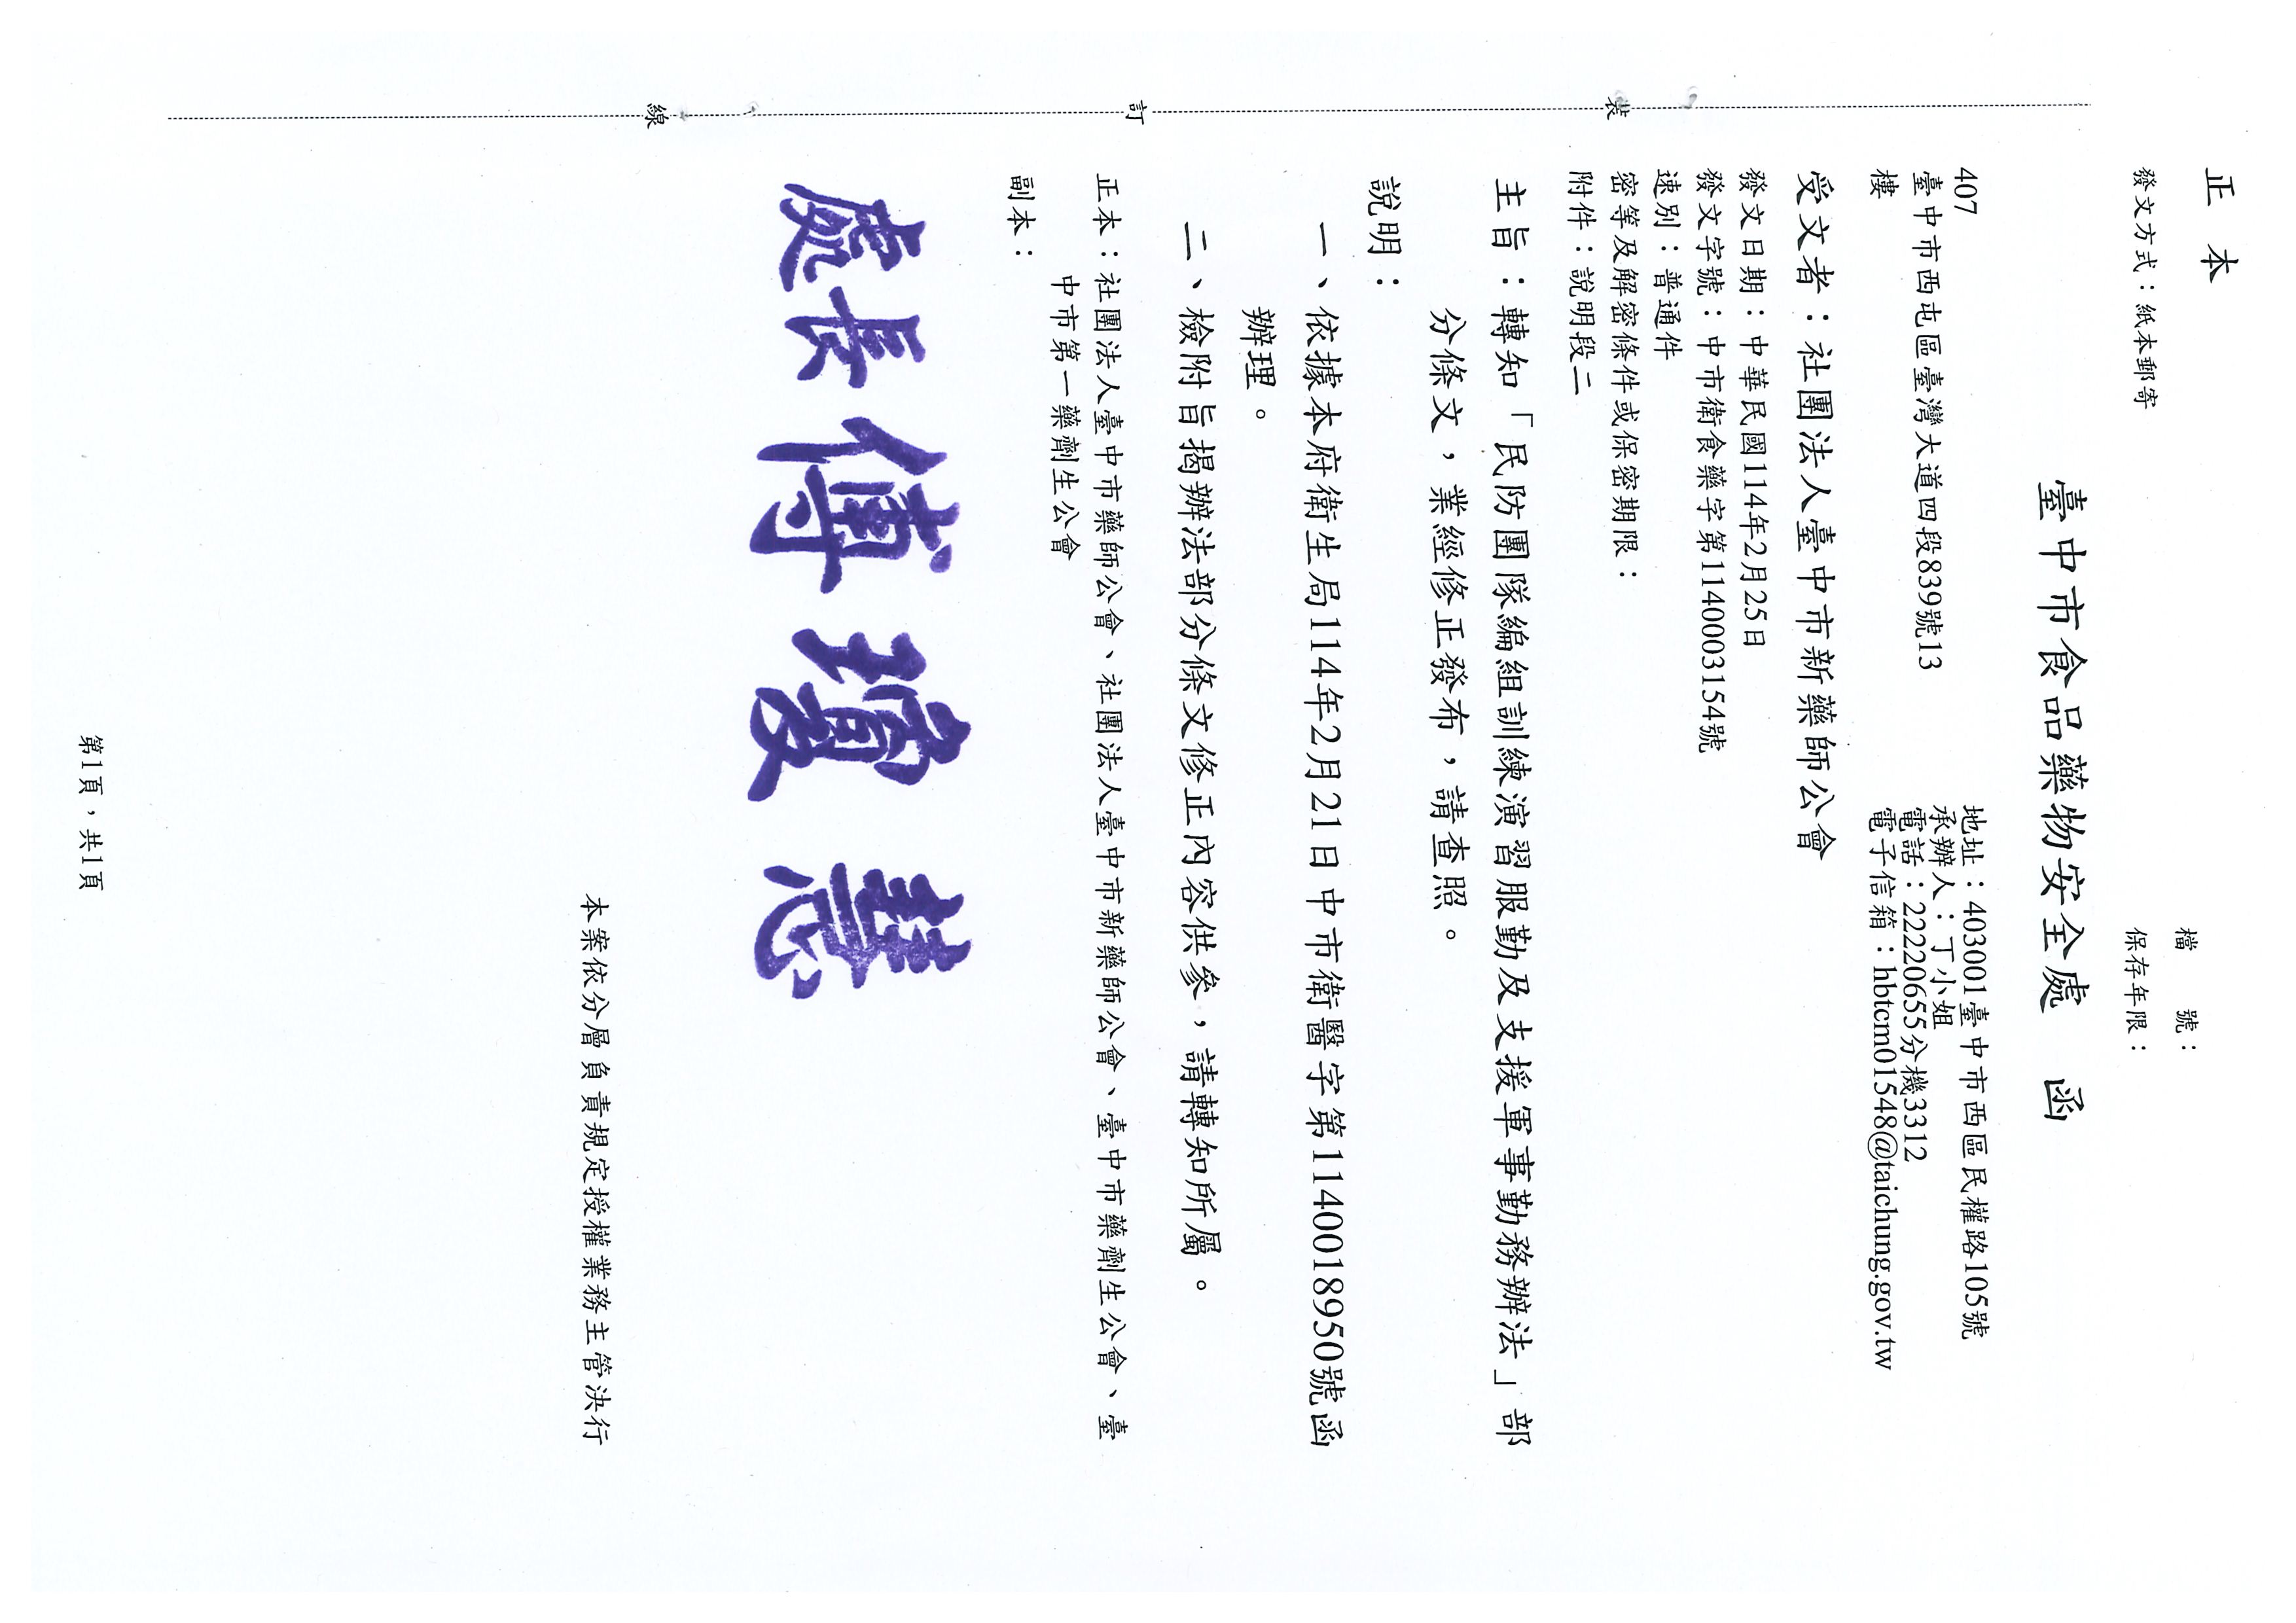 正本
發文方式：紙本郵寄
檔　　號：
保存年限：
臺中市食品藥物安全處　函
地址：403001臺中市西區民權路105號
承辦人：丁小姐
電話：22220655分機3312
電子信箱：hbtcm01548@taichung.gov.tw
407
臺中市西屯區臺灣大道四段839號13
樓
受文者：社團法人臺中市新藥師公會
發文日期：中華民國114年2月25日
發文字號：中市衛食藥字第1140003154號
速別：普通件
密等及解密條件或保密期限：
附件：說明段二
主旨：轉知「民防團隊編組訓練演習服勤及支援軍事勤務辦法」部
分條文，業經修正發布，請查照。
說明：
一、依據本府衛生局114年2月21日中市衛醫字第1140018950號函
辦理。
二、檢附旨揭辦法部分條文修正內容供參，請轉知所屬。
正本：社團法人臺中市藥師公會、社團法人臺中市新藥師公會、臺中市藥劑生公會、臺
中市第一藥劑生公會
副本：
處長傅瓊慧
本案依分層負責規定授權業務主管決行
裝
訂
線
第1頁，共1頁